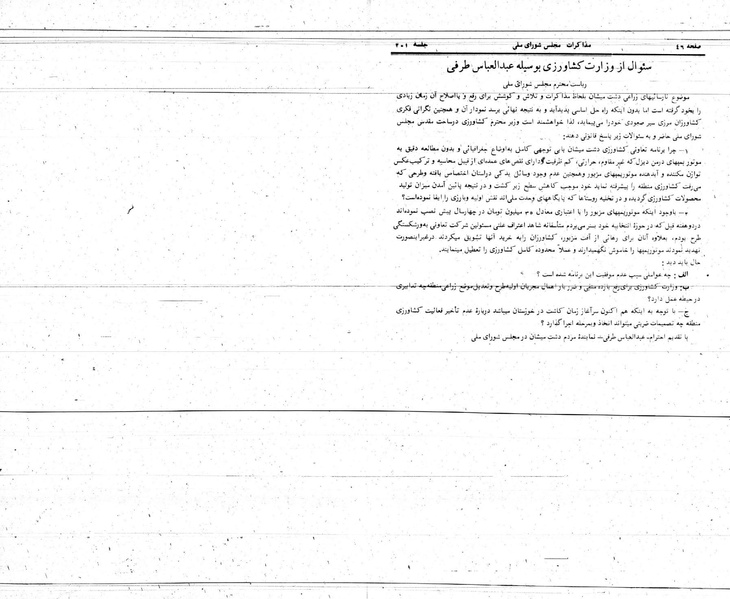 صفحه ٤٦ مذاکرات مجلس شورای ملی جلسه ٢٠١
سئوال از وزارت کشاورزی بوسیله عبدالعباس طرفی
ریاست محترم مجلس شورای ملی
موضوع نارسائیهای زراعی دشت میشان بلحاظ مذاکرات و تلاش و کوشش برای رفع و یااصلاح آن زمان زیادی
را بخود گرفته است اما بدون اینکه راه حل اساسی پدیدآید و به نتیجه نهائی برسد نمودار آن و همچنین نگرانی فکری
کشاورزان مرزی سیر صعودی خودرا میپیماید، لذا خواهشمند است وزیر محترم کشاورزی درساحت مقدس مجلس
شورای ملی حاضر و به سئوالات زیر پاسخ قانونی دهند:
١- چرا برنامه تعاونی کشاورزی دشت میشان بابی توجهی کامل به‌اوضاع جغرافیائی و بدون مطالعه دقیق به
موتورپمپهای درمن دیزل که غیرمقاوم، حرارتی، کم ظرفیت و دارای نقص‌های عمده‌ای از قبیل محاسبه و ترکیب‌عکس
توازن مکنده و آبدهنده موتورپمپهای مزبور وهمچنین عدم وجود وسائل یدکی دراستان اختصاص یافته وطرحی که
میرفت کشاورزی منطقه را پیشرفته نماید خود موجب کاهش سطح زیر کشت و در نتیجه پائین آمدن میزان تولید
محصولات کشاورزی گردیده و در تخلیه روستاها که پایگاههای وحدت ملی‌اند نقش اولیه وبارزی را ایفا نموده‌است؟
باوجود اینکه موتورپمپهای مزبور را با اعتباری معادل میلیون تومان در چهارسال پیش نصب نموده‌اند
دردوهفته قبل که درحوزهٔ انتخابیه خود بسر می‌بردم متأسفانه شاهد اعتراف علنی مسئولین شرکت تعاونی به‌ورشکستگی
طرح بودم، بعلاوه آنان برای رهائی از آفت مزبور، کشاورزان رابه خرید آنها تشویق میکردند درغیراینصورت
تهدید نمودند موتورپمپها را خاموش نگهمیدارند و عملا محدوده کامل کشاورزی را تعطیل مینمایند.
حال باید دید:
الف: چه عواملی سبب عدم موفقیت این برنامه شده است؟
ب: وزارت کشاورزی برای رفع بازده منفی و ضرر بار اعمال مجریان اولیه‌طرح وتعدیل‌موضع زراعی‌منطقه‌چه تدابیری
درحیطه عمل دارد؟
ج- با توجه به اینکه هم اکنون سرآغاز زمان کاشت در خوزستان میباشد دربارهٔ عدم تأخیر فعالیت کشاورزی
منطقه چه تصمیمات ضربتی میتواند اتخاذ وبمرحله اجرا گذارد؟
با تقدیم احترام، عبدالعباس طرفی- نماینده مردم دشت میشان در مجلس شورای ملی